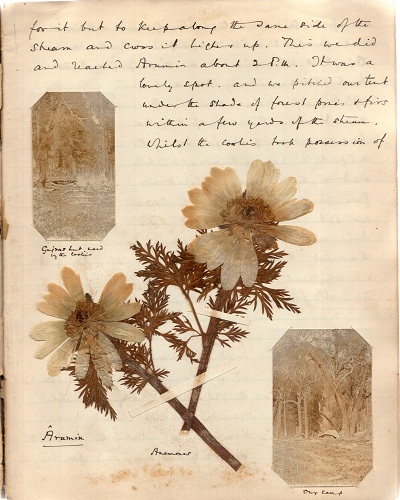 for it but to keep along the same side of the
stream and cross it higher up. This we did
and reached Arumin about 2 P.M. It was a
lovely spot. and we pitched our tent
under the shade of forest pines & firs
within a few yards of the stream.
Whilst the coolies took possession of
hut, used
by the coolies
Ârumin
Anemones
Our camp